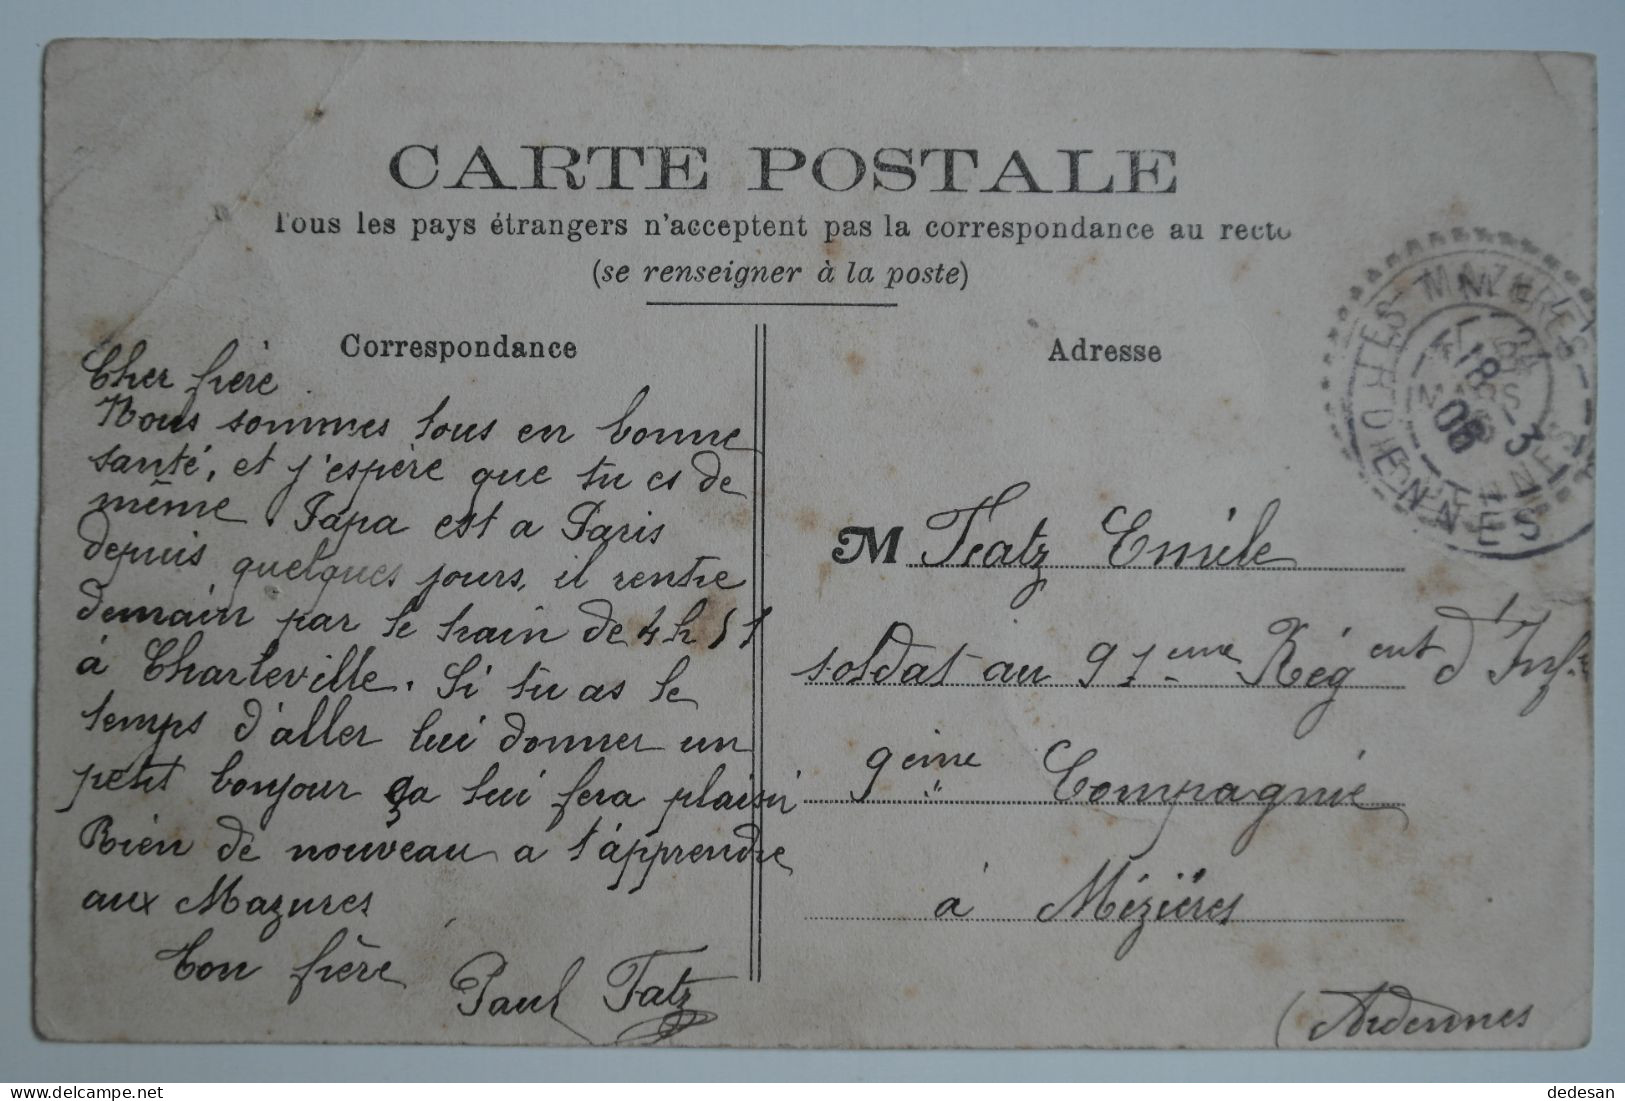 CARTE POSTALE
Tous les pays étrangers n'acceptent pas la correspondance au recto
(se renseigner à la poste)
Correspondance
Cher frère
Nous sommes tous en bonne
santé, et j'espère que tu es de
même. Papa est a Paris
depuis quelques jours, il rentre
demain par le train de 4h 51
à Charleville. Si tu as le
temps d'aller lui donner un
petit bonjour ça lui fera plaisir
Rien de nouveau a t'apprendre
aux Mazures
Ton frère
Paul Tatz
Adresse
M Tatz Emile
soldat au 91eme Régent d'Infie
9eme Compagnie
à Mézières
(Ardennes
LES MAZURES
18 -3
06
MARS
ARDENNES
dedesan